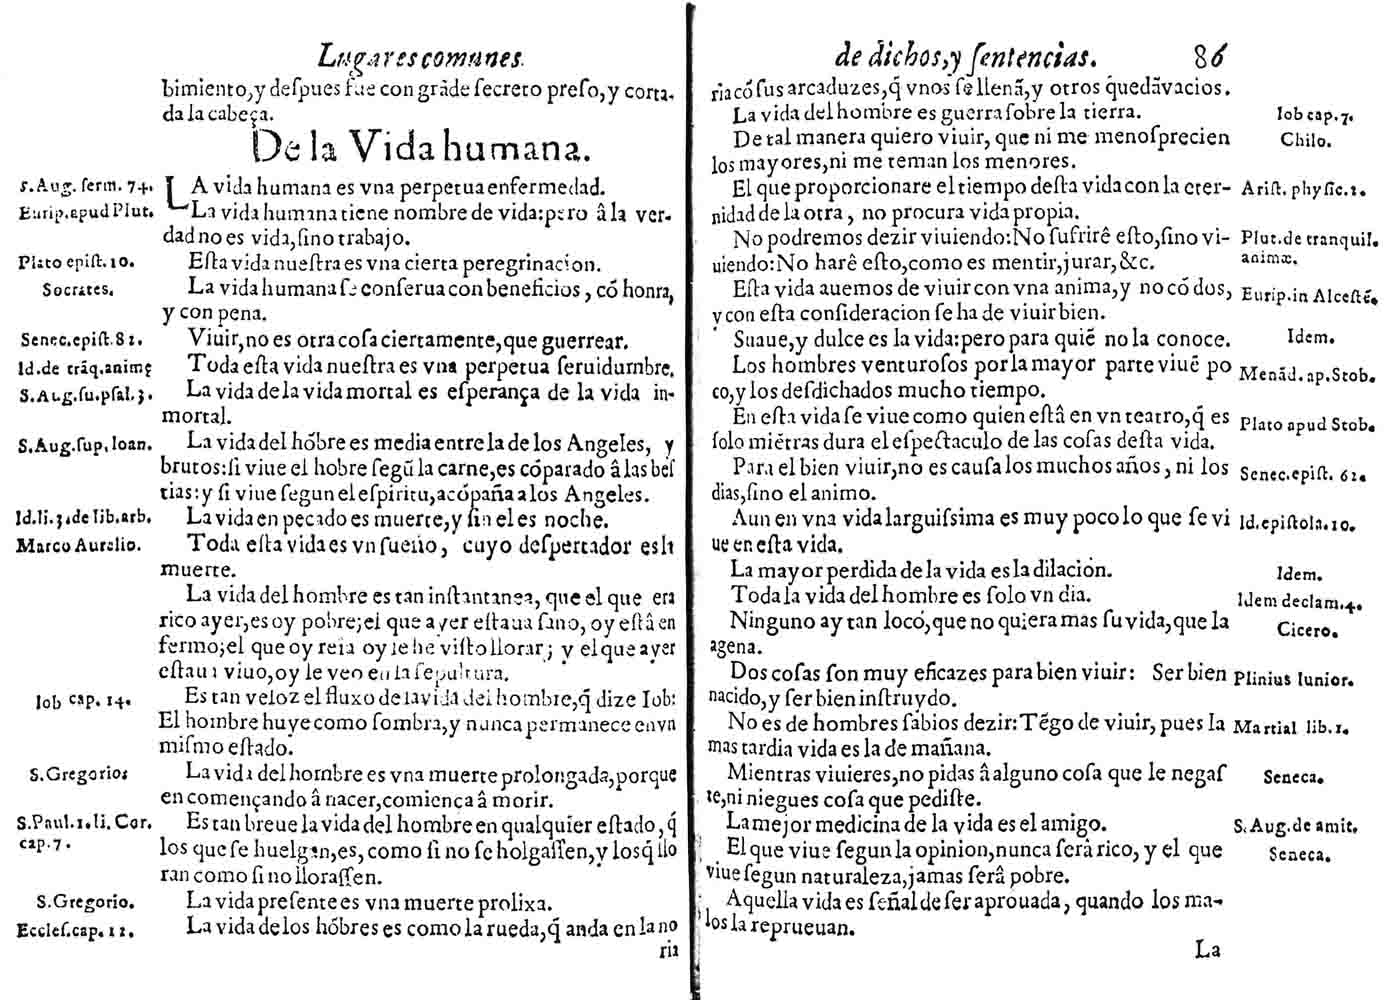 Lugares comunes.
bimiento, y deſpues fue con grãde ſecreto preſo, y corta-
da la cabeça.
De la Vida humana.
S. Aug. ſerm. 74. LA vida humana es vna perpetua enfermedad.
Eurip. apud Plut. La vida humana tiene nombre de vida: pero â la ver-
dad no es vida, ſino trabajo.
Plato epiſt. 10. Eſta vida nueſtra es vna cierta peregrinacion.
Socrates. La vida humana ſe conſerua con beneficios, cõ honra,
y con pena.
Senec. epiſt. 82. Viuir, no es otra coſa ciertamente, que guerrear.
Id. de trãq. animę Toda eſta vida nueſtra es vna perpetua ſeruidumbre.
S. Aug. ſu. pſal. 3. La vida de la vida mortal es eſperança de la vida in-
mortal.
S. Aug. ſup. Ioan. La vida del hõbre es media entre la de los Angeles, y
brutos: ſi viue el hobre ſegũ la carne, es cõparado â las beſ
tias: y ſi viue ſegun el eſpiritu, acõpaña a los Angeles.
Id. li. 3. de lib. arb. La vida en pecado es muerte, y ſin el es noche.
Marco Aurelio. Toda eſta vida es vn ſueño, cuyo deſpertador es la
muerte.
La vida del hombre es tan inſtantanea, que el que era
rico ayer, es oy pobre; el que ayer eſtaua ſano, oy eſtâ en
fermo; el que oy reia oy le he viſto llorar; y el que ayer
eſtaua viuo, oy le veo en la ſepultura.
Iob cap. 14. Es tan veloz el fluxo de la vida del hombre, q̃ dize Iob:
El hombre huye como ſombra, y nunca permanece en vn
miſmo eſtado.
S. Gregorio: La vida del hombre es vna muerte prolongada, porque
en començando â nacer, comiença â morir.
S. Paul. 1. li. Cor. Es tan breue la vida del hombre en qualquier eſtado, q̃
cap. 7. los que ſe huelgan, es, como ſi no ſe holgaſſen, y los q̃ llo
ran como ſi no lloraſſen.
S. Gregorio. La vida preſente es vna muerte prolixa.
Eccleſ. cap. 12. La vida de los hõbres es como la rueda, q̃ anda en la no
ria
de dichos, y ſentencias. 86
ria cõ ſus arcaduzes, q̃ vnos ſe llenã, y otros quedã vacios.
La vida del hombre es guerra ſobre la tierra. Iob cap. 7.
De tal manera quiero viuir, que ni me menoſprecien Chilo.
los mayores, ni me teman los menores.
El que proporcionare el tiempo deſta vida con la eter- Ariſt. phyſic. 1.
nidad de la otra, no procura vida propia.
No podremos dezir viuiendo: No ſufrirê eſto, ſino vi- Plut. de tranquil.
uiendo: No harê eſto, como es mentir, jurar, &c. animæ.
Eſta vida auemos de viuir con vna anima, y no cõ dos, Eurip. in Alceſtẽ.
y con eſta conſideracion ſe ha de viuir bien.
Suaue, y dulce es la vida: pero para quiẽ no la conoce. Idem.
Los hombres venturoſos por la mayor parte viuẽ po Menãd. ap. Stob.
co, y los deſdichados mucho tiempo.
En eſta vida ſe viue como quien eſtâ en vn teatro, q̃ es Plato apud Stob.
ſolo miẽtras dura el eſpectaculo de las coſas deſta vida.
Para el bien viuir, no es cauſa los muchos años, ni los Senec. epiſt. 62.
dias, ſino el animo.
Aun en vna vida larguiſsima es muy poco lo que ſe vi Id. epiſtola. 10.
ue en eſta vida.
La mayor perdida de la vida es la dilación. Idem.
Toda la vida del hombre es ſolo vn dia. Idem declam. 4.
Ninguno ay tan loco, que no quiera mas ſu vida, que la Cicero.
agena.
Dos coſas ſon muy eficazes para bien viuir: Ser bien Plinius Iunior.
nacido, y ſer bien inſtruydo.
No es de hombres ſabios dezir: Tẽgo de viuir, pues la Martial lib. 1.
mas tardia vida es la de mañana.
Mientras viuieres, no pidas â alguno coſa que le negaſ Seneca.
te, ni niegues coſa que pediſte.
La mejor medicina de la vida es el amigo. S. Aug. de amit.
El que viue ſegun la opinion, nunca ſerâ rico, y el que Seneca.
viue ſegun naturaleza, jamas ſerâ pobre.
Aquella vida es ſeñal de ſer aprouada, quando los ma-
los la reprueuan.
La